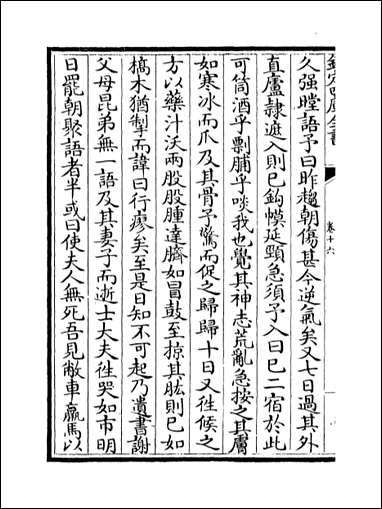 欽定四庫全書
卷十六
久强瞠語予曰昨趨朝傷甚今逆氣矣又七日過其外
直廬隷遮入則已鈎幙延頸急須予入曰已二宿於此
可筒酒乎劑脯乎啖我也覺其神志荒亂急按之其膚
如寒冰而爪及其骨予驚而促之歸歸十日又徃候之
方以藥汁沃兩股股腫達臍如冒鼓至掠其肱則已如
槁木猶掣而諱曰行瘳矣至是日知不可起乃遺書謝
父母昆弟無一語及其妻子而逝士大夫徃哭如市明
日罷朝聚語者半或曰使夫人無死吾見敝車羸馬以